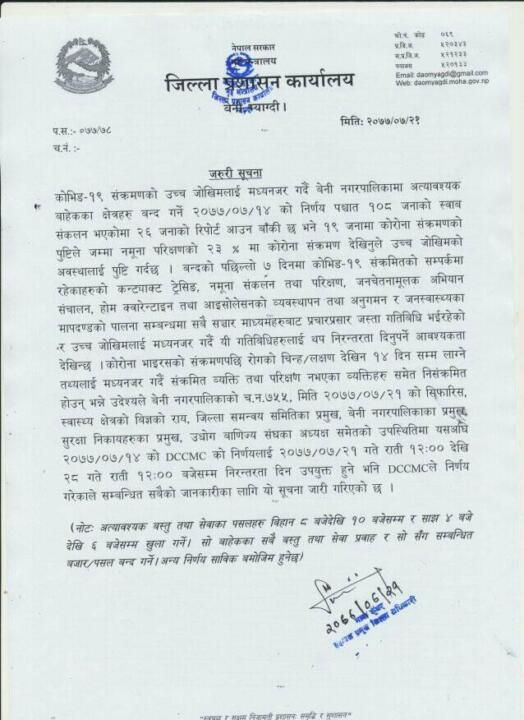 फो.नं. कोड ०६९
प्र.जि.अ. ५२०३४३
स.प्र.जि.अ. ५२१२३३
फ्याक्स ५२०१३३
Email: daomyagdi@gmail.com
Web: daomyagdi.moha.gov.np
नेपाल सरकार
गृह मन्त्रालय
जिल्ला प्रशासन कार्यालय
बेनी, म्याग्दी।
प.स.:- ०७७/७८
मितिः २०७७/०७/२१
च.नं. :-
जरुरी सूचना
कोभिड-१९ संक्रमणको उच्च जोखिमलाई मध्यनजर गर्दै बेनी नगरपालिकामा अत्यावश्यक
बाहेकका क्षेत्रहरु बन्द गर्ने २०७७/०७/१४ को निर्णय पश्चात १०८ जनाको स्वाब
संकलन भएकोमा २६ जनाको रिपोर्ट आउन बाँकी छ भने १९ जनामा कोरोना संक्रमणको
पुष्टिले जम्मा नमूना परिक्षणको २३ % मा कोरोना संक्रमण देखिनुले उच्च जोखिमको
अवस्थालाई पुष्टि गर्दछ । बन्दको पछिल्लो ७ दिनमा कोभिड-१९ संक्रमितको सम्पर्कमा
रहेकाहरुको कन्टयाक्ट ट्रेसिङ, नमूना संकलन तथा परिक्षण, जनचेतनामूलक अभियान
संचालन, होम क्वारेन्टाइन तथा आइसोलेसनको व्यवस्थापन तथा अनुगमन र जनस्वास्थ्यका
मापदण्डको पालना सम्बन्धमा सबै सञ्चार माध्यमहरुबाट प्रचारप्रसार जस्ता गतिविधि भईरहेको
र उच्च जोखिमलाई मध्यनजर गर्दै यी गतिविधिहरुलाई थप निरन्तरता दिनुपर्ने आवश्यकता
देखिन्छ । कोरोना भाइरसको संक्रमणपछि रोगको चिन्ह/लक्षण देखिन १४ दिन सम्म लाग्ने
तथ्यलाई मध्यनजर गर्दै संक्रमित व्यक्ति तथा परिक्षण नभएका व्यक्तिहरु समेत निसंक्रमित
होउन् भन्ने उदेश्यले बेनी नगरपालिकाको च.न.७५५, मिति २०७७/०७/२१ को सिफारिस,
स्वास्थ्य क्षेत्रको विज्ञको राय, जिल्ला समन्वय समितिका प्रमुख, बेनी नगरपालिकाका प्रमुख,
सुरक्षा निकायहरुका प्रमुख, उधोग बाणिज्य संघका अध्यक्ष समेतको उपस्थितिमा यसअघि
२०७७/०७/१४ को DCCMC को निर्णयलाई २०७७/०७/२१ गते राती १२:०० देखि
२८ गते राती १२:०० बजेसम्म निरन्तरता दिन उपयुक्त हुने भनि DCCMCले निर्णय
गरेकाले सम्बन्धित सबैको जानकारीका लागि यो सूचना जारी गरिएको छ ।
(नोटः अत्यावश्यक बस्तु तथा सेवाका पसलहरु बिहान ८ बजेदेखि १० बजेसम्म र साझ ४ बजे
देखि ६ बजेसम्म खुला गर्ने। सो बाहेकका सबै वस्तु तथा सेवा प्रवाह र सो सँग सम्बन्धित
बजार/पसल बन्द गर्ने।अन्य निर्णय साविक बमोजिम हुनेछ)
सहायक प्रमुख जिल्ला अधिकारी
"स्वच्छ र सक्षम निजामती प्रशासनः समृद्धि र सुशासन"